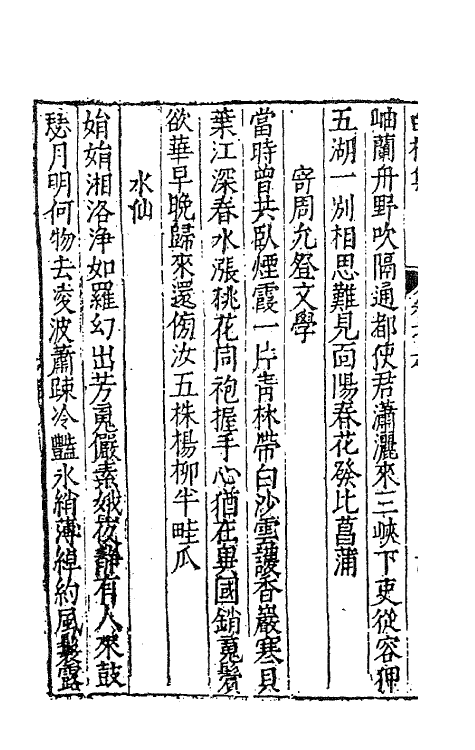 岫蘭舟野吹隔通都使君瀟灑來三峽下吏從容狎
五湖一別相思難見面陽春花發比菖蒲
寄周允登文學
當時曾共臥煙霞一片青林帶白沙雲護香巖寒貝
葉江深春水漲桃花同袍握手心猶在異國銷䰟鬢
欲華早晚歸來還傍汝五株楊柳半畦瓜
水仙
娟娟湘洛淨如羅幻出芳䰟儼素娥夜靜有人來鼓
瑟月明何物去凌波蕭疎冷豔冰綃薄綽約風鬟露